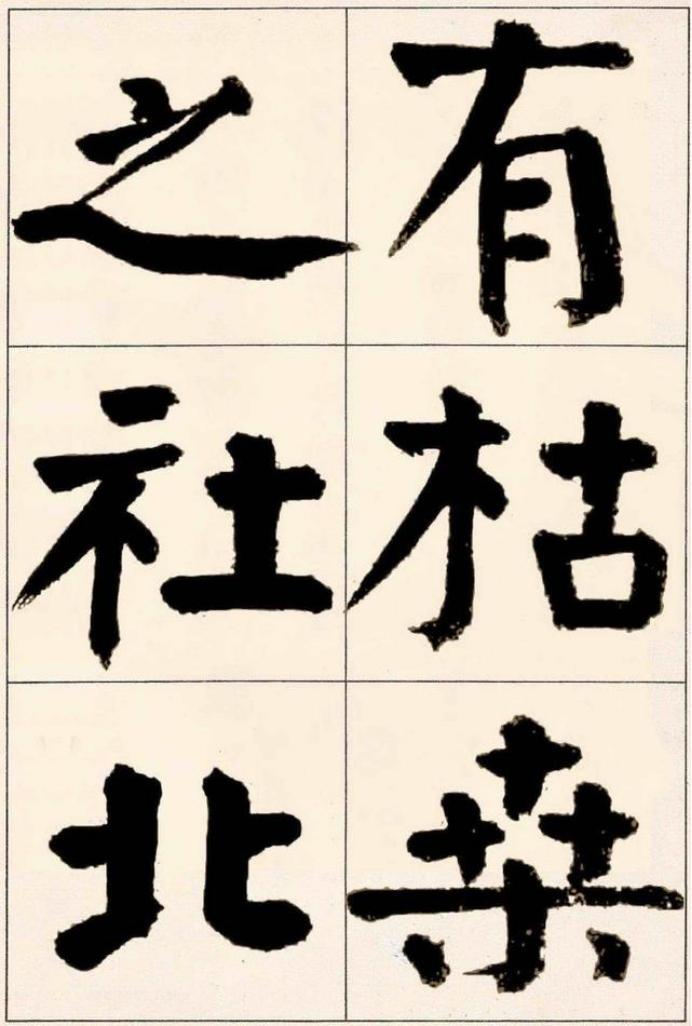 有枯桒
之社北